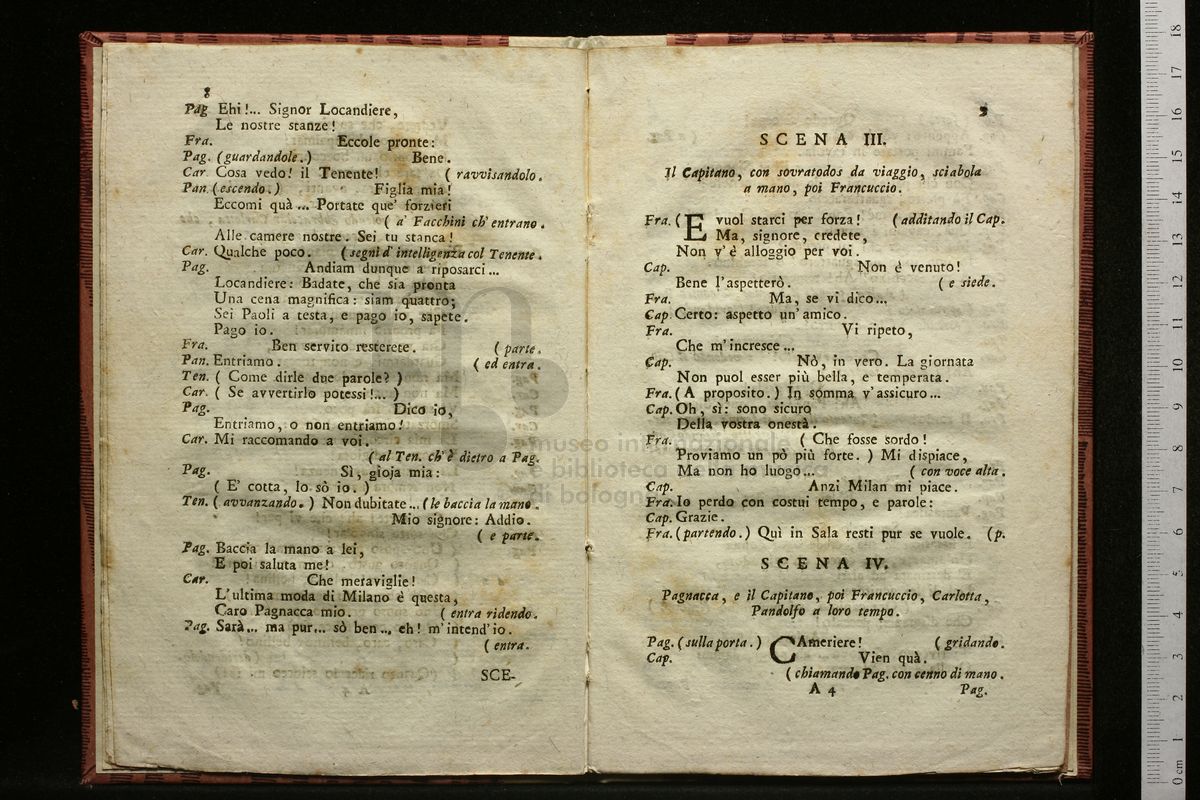 8
Pag Ehi!... Signor Locandiere,
Le nostre stanze!
Fra. Eccole pronte:
Pag. (guardandole.) Bene.
Car. Cosa vedo! il Tenente! (ravvisandolo.
Pan. (escendo.) Figlia mia!
Eccomi quà... Portate que' forzieri
(a' Facchini ch' entrano.
Alle camere nostre. Sei tu stanca!
Car. Qualche poco. (segni d' intelligenza col Tenente.
Pag. Andiam dunque a riposarci...
Locandiere: Badate, che sia pronta
Una cena magnifica: siam quattro;
Sei Paoli a testa, e pago io, sapete.
Pago io.
Fra. Ben servito resterete. (parte.
Pan. Entriamo. (ed entra.
Ten. ( Come dirle due parole? )
Car. ( Se avvertirlo potessi!... )
Pag. Dico io,
Entriamo, o non entriamo!
Car. Mi raccomando a voi.
(al Ten. ch' è dietro a Pag.
Pag. Sì, gioja mia:
( E' cotta, lo sò io. )
Ten. (avvanzando.) Non dubitate... (le baccia la mano.
Mio signore: Addio.
(e parte.
Pag. Baccia la mano a lei,
E poi saluta me!
Car. Che meraviglie!
L' ultima moda di Milano è questa,
Caro Pagnacca mio. (entra ridendo.
Pag. Sarà... ma pur... sò ben... eh! m' intend' io.
(entra.
SCE-
9
SCENA III.
Il Capitano, con sovratodos da viaggio, sciabola
a mano, poi Francuccio.
Fra. (E vuol starci per forza! (additando il Cap.
Ma, signore, credete,
Non v' è alloggio per voi.
Cap. Non è venuto!
Bene l' aspetterò. (e siede.
Fra. Ma, se vi dico...
Cap Certo: aspetto un' amico.
Fra. Vi ripeto,
Che m' incresce...
Cap. Nò, in vero. La giornata
Non puol esser più bella, e temperata.
Fra. (A proposito.) In somma v' assicuro...
Cap. Oh, sì: sono sicuro
Della vostra onestà.
Fra. ( Che fosse sordo!
Proviamo un pò più forte. ) Mi dispiace,
Ma non ho luogo... (con voce alta.
Cap. Anzi Milan mi piace.
Fra. Io perdo con costui tempo, e parole:
Cap. Grazie.
Fra. (partendo.) Quì in Sala resti pur se vuole. (p.
SCENA IV.
Pagnacca, e il Capitano, poi Francuccio, Carlotta,
Pandolfo a loro tempo.
Pag. (sulla porta.) CAmeriere! (gridando.
Cap. Vien quà.
(chiamando Pag. con cenno di mano.
A 4 Pag.
museo internazionale
e biblioteca della musica
di bologna
0 cm 1 2 3 4 5 6 7 8 9 10 11 12 13 14 15 16 17 18